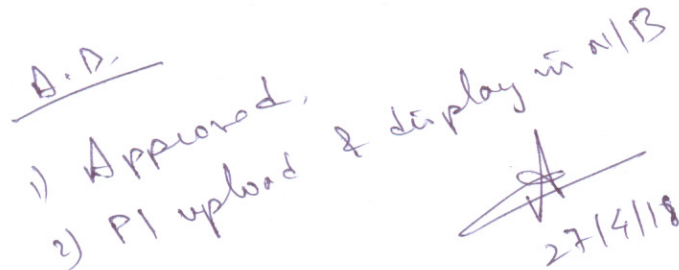 A.D.
1) Approved.
2) Pl upload & display in N/B
27/4/18